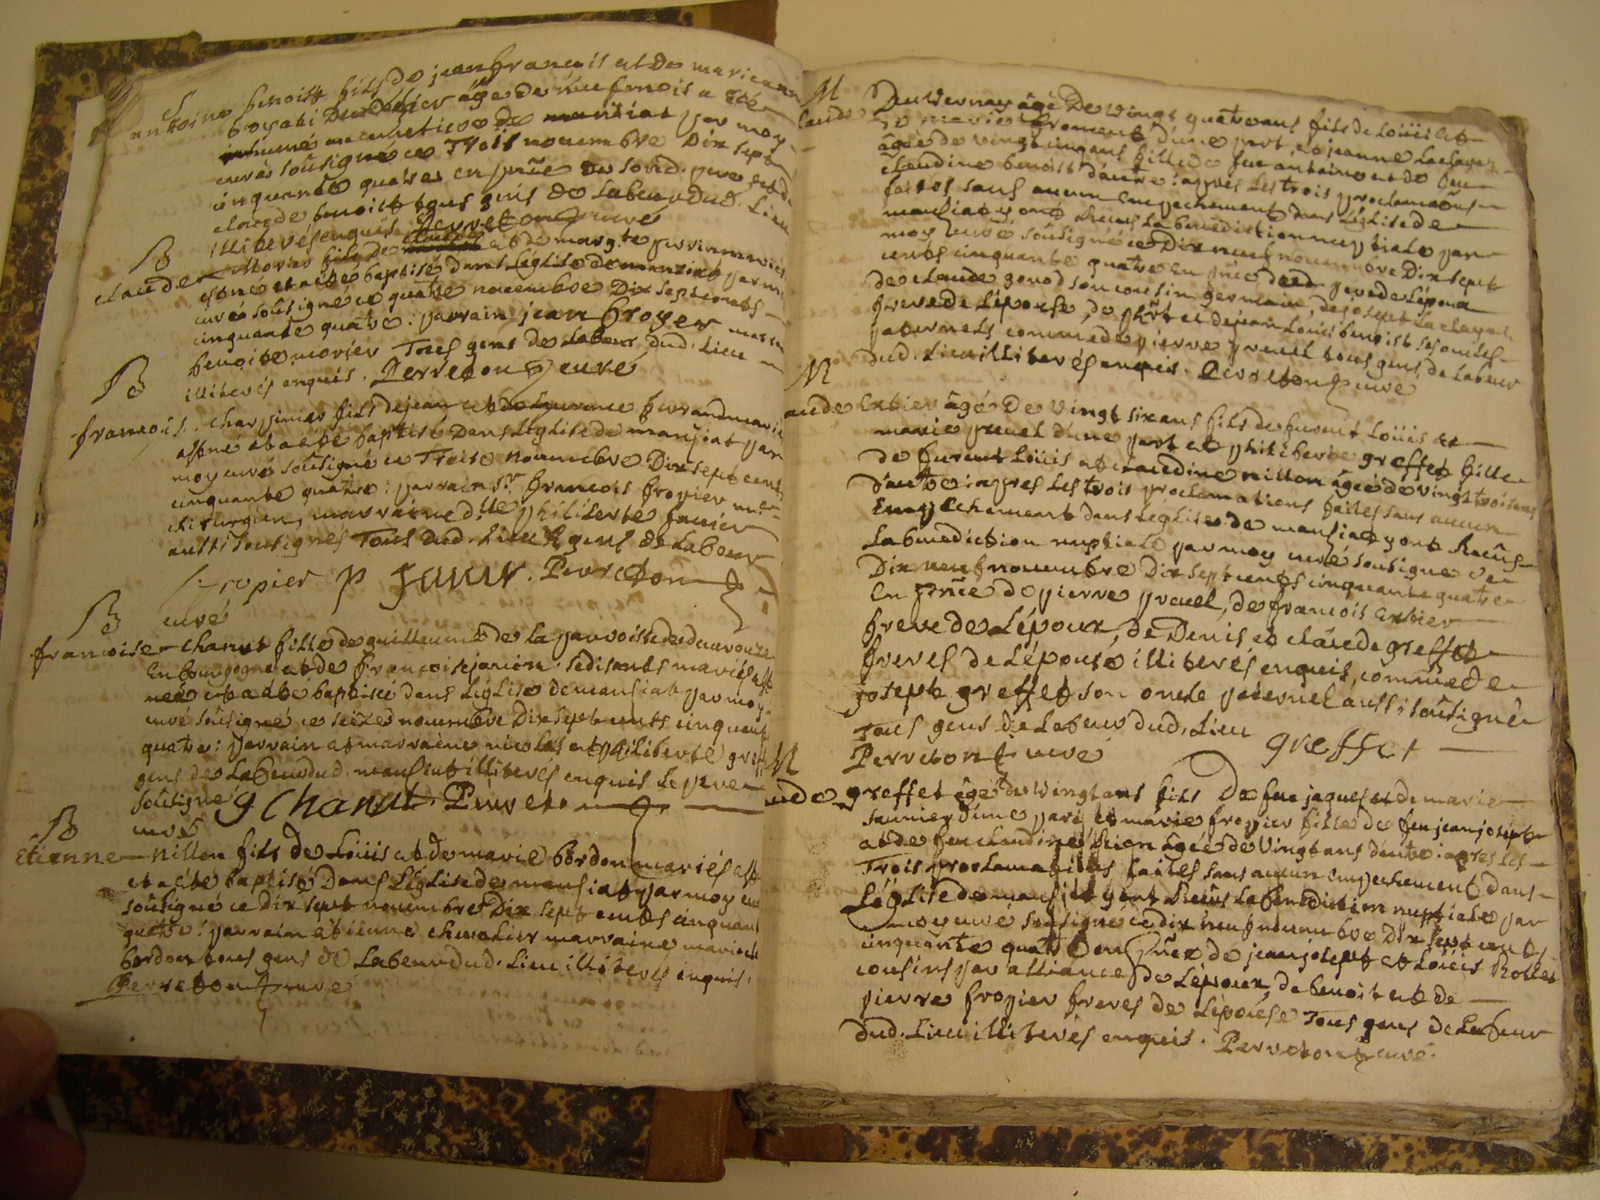 antoine benoist fils de jean francois et de marie
agé de neuf mois a été
inhumé au cimetiere de mansiat par moy
curé soûsigné ce Trois novembre Dix sept
cinquante quatre en pñce de son d. pere et de
claude benoist tous gens de Labeur dud. Lieu
illiterés enquis Perreton curé
B
claude Morier fils de et de margte
est né et a été baptisé dans Leglise de mansiat par moy
curé soûsigné ce quatre novembre Dix sept cents
cinquante quatre : parrain jean froper
benoite morier Tous gens de Labeur dud. Lieu
illiterés enquis. Perreton curé
B
francois. charpinier fils de jean et de Laurence ferrand mariés
est né et a été baptisé Dans Leglise de mansiat par
moy curé soûsigné ce Trois novembre Dix sept cents
cinquante quatre : parrain sr. francois fropier
chirurgien, marraine dlle philiberte janier
aussi soûsignés Tous Dud. Lieu gens de Labeur
fropier p janier. Perreton
curé
B
francoise chanut fille de guilleaume de la parroisse de
En bourgogne et de francoise janin. se disants mariés est
née et a été baptisé dans Leglise de mansiat par moy
curé soûsigné ce seize novembre Dix sept cents cinquante
quatre : parrain et marraine nicolas et philiberte greffet
gens de Labeur dud. mansiat illiterés enquis Le pere
soûsigné g Chanut Perreton
curé
B
etienne nillon fils de Loüis et de marie bordon mariés est né
et a été baptisé Dans Léglise de mansiat par moy curé
soûsigné ce Dix sept novembre Dix sept cents cinquante
quatre : parrain etienne chevalier marraine marie
bordon tous gens de Labeur dud. Lieu illiterés enquis.
Perreton curé
M
agé De vingt quatre ans fils de Loüis et
de marie froment d'une part, et jeanne
âgée de vingt cinq ans fille de feu antoine et de feu
claudine benoist d'autre : apres Les trois proclamaons
faites sans aucun Empechement dans Léglise de
mansiat y ont Recus La benediction nuptiale par
moy curé soûsigné ce Dix neuf novembre Dix sept
cents cinquante quatre en pñce de pere de Lépoux
de claude gonod son cousin germain, de joseph
frere de Lépouse, de et de jean Loüis benoist ses oncles
paternels comme de pierre pruel tous gens de Labeur
dud. Lieu illiterés enquis. Perreton curé
M
âgé De vingt six ans fils de furent Loüis et
marie pruel d'une part et philiberte greffet fille
de furent Loüis et claudine nillon âgée de vingt trois ans
d'autre : apres Les trois proclamations faites sans aucun
Empechement dans Leglise de mansiat y ont Recûs
La benediction nuptiale par moy curé soûsigné ce
Dix neuf novembre Dix sept cents cinquante quatre
En pñce de pierre pruel, de francois
frere de Lépoux, de Denis et claude greffet
freres de Lépouse illiterés enquis, comme de
joseph greffet son oncle paternel aussi soûsigné
Tous gens de Labeur dud. Lieu
Perreton curé greffet
M
greffet âgé de vingt ans fils De feu jaques et de marie
saunier d'une part et marie fropier fille de feu jean joseph
et de feu claudine âgée de vingt ans d'autre : apres Les
Trois proclamations faites sans aucun empechement dans
Léglise de mansiat y ont Recûs La benediction nuptiale par
moy curé soûsigné ce dix neuf novembre Dix sept cents
cinquante quatre en pñce de jean joseph et Loüis Rollet
cousins par alliance de Lépoux, de benoit et de
pierre fropier freres de Lépouse Tous gens de Labeur
dud. Lieu illiterés enquis. Perreton curé.